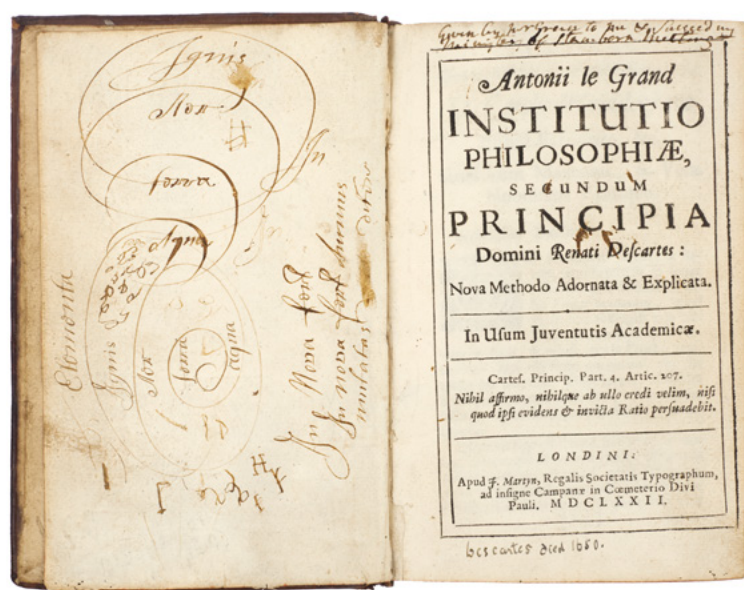 Ignis
Aer
terra
Aqua
Elementa
Ignis
Aer
terra
aqua
In Nova fert
In nova fert animus
mutatas
In
Given by
to me
of
Antonii le Grand
INSTITUTIO
PHILOSOPHIÆ,
SECUNDUM
PRINCIPIA
Domini Renati Descartes :
Nova Methodo Adornata & Explicata.
In Usum Juventutis Academicæ.
Cartes. Princip. Part. 4. Artic. 207.
Nihil affirmo, nihilque ab ullo credi velim, nisi
quod ipsi evidens & invicta Ratio persuadebit.
LONDINI:
Apud J. Martyn, Regalis Societatis Typographum,
ad insigne Campanæ in Cœmeterio Divi
Pauli. MDCLXXII.
Descartes died 1650.